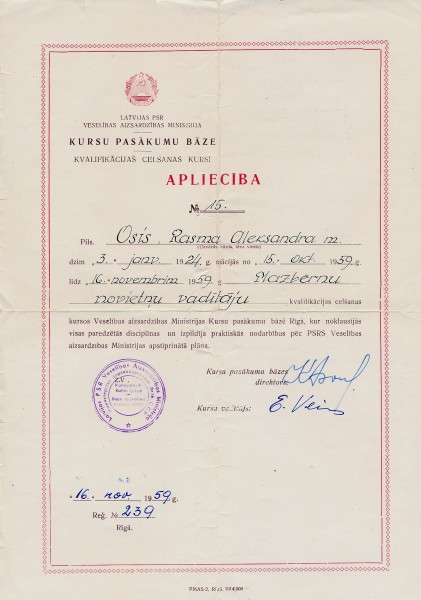 LATVIJAS PSR
VESELĪBAS AIZSARDZĪBAS MINISTRIJA
KURSU PASĀKUMU BĀZE
KVALIFIKĀCIJAS CELŠANAS KURSI
APLIECĪBA
№ 15.
Pils. Osis, Rasma Aleksandra m.
(Uzvārds, vārds, tēva vārds)
dzim 3. janv. 1924. g. mācījās no 15. okt 1959. g.
līdz 16. novembrim 1959. g. Mazbērnu
novietņu vadītāju kvalifikācijas celšanas
kursos Veselības aizsardzības Ministrijas Kursu pasākumu bāzē Rīgā, kur noklausījās
visas paredzētās disciplīnas un izpildīja praktiskās nodarbības pēc PSRS Veselības
aizsardzības Ministrijas apstiprinātā plāna.
Kursu pasākumu bāzes
direktors:
Kursu vadītājs:
Z.V.
16. nov. 1959 g.
Reģ. № 239
Rīgā.